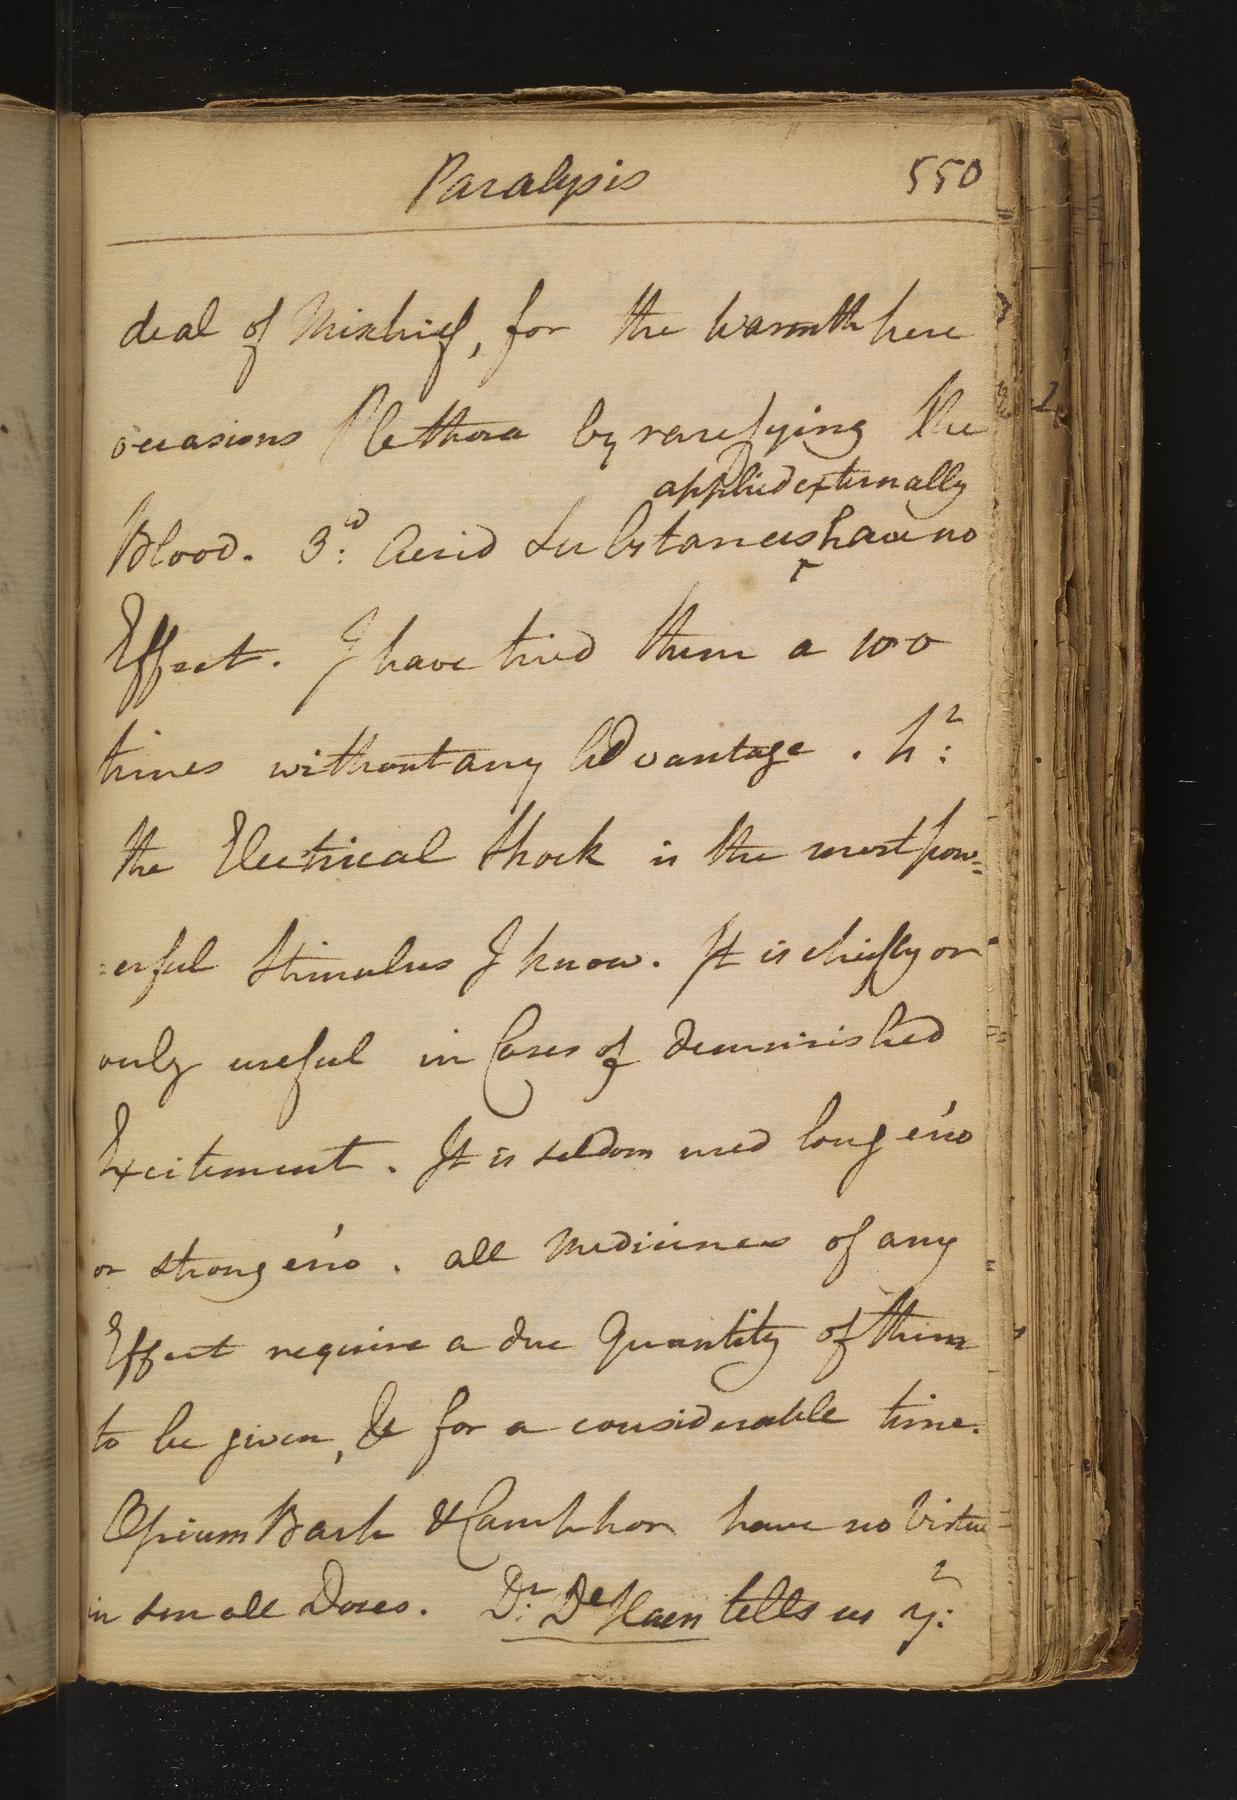 Paralysis 550
deal of Mischief, for the Warmth here
occasions Plethora by rarefying the
applied externally
Blood. 3:d Acrid Substances have no
Effect. I have tried them a 100
times without any Advantage.
the Electrical Shock is the most pow=
=erful Stimulus I know. It is chiefly or
only useful in Cases of deminished
Excitement. It is seldom used long eno'
or strong eno'. all Medicines of any
Effect require a due Quantity of them
to be given, & for a considerable time.
Opium Bark & Camphor have no Virtue
in small Doses. Dr: De Haen tells us yt: